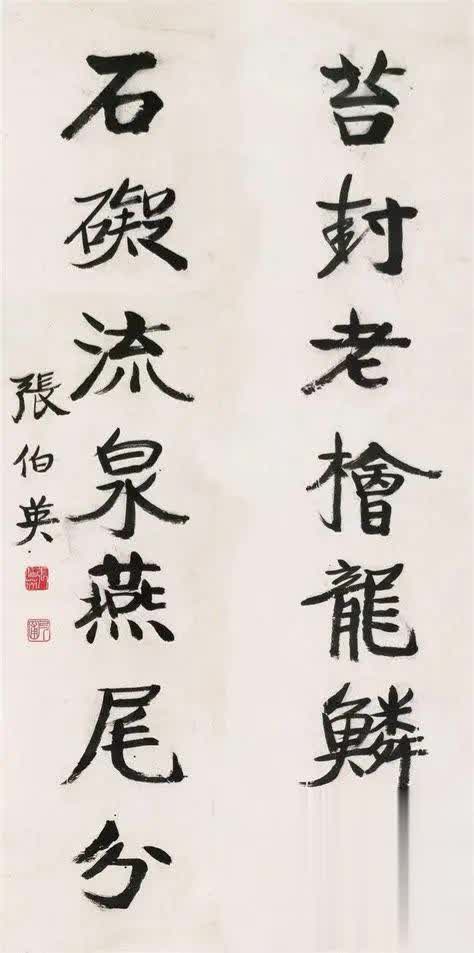 苔封老檜龍鱗
石礙流泉燕尾分
張伯英